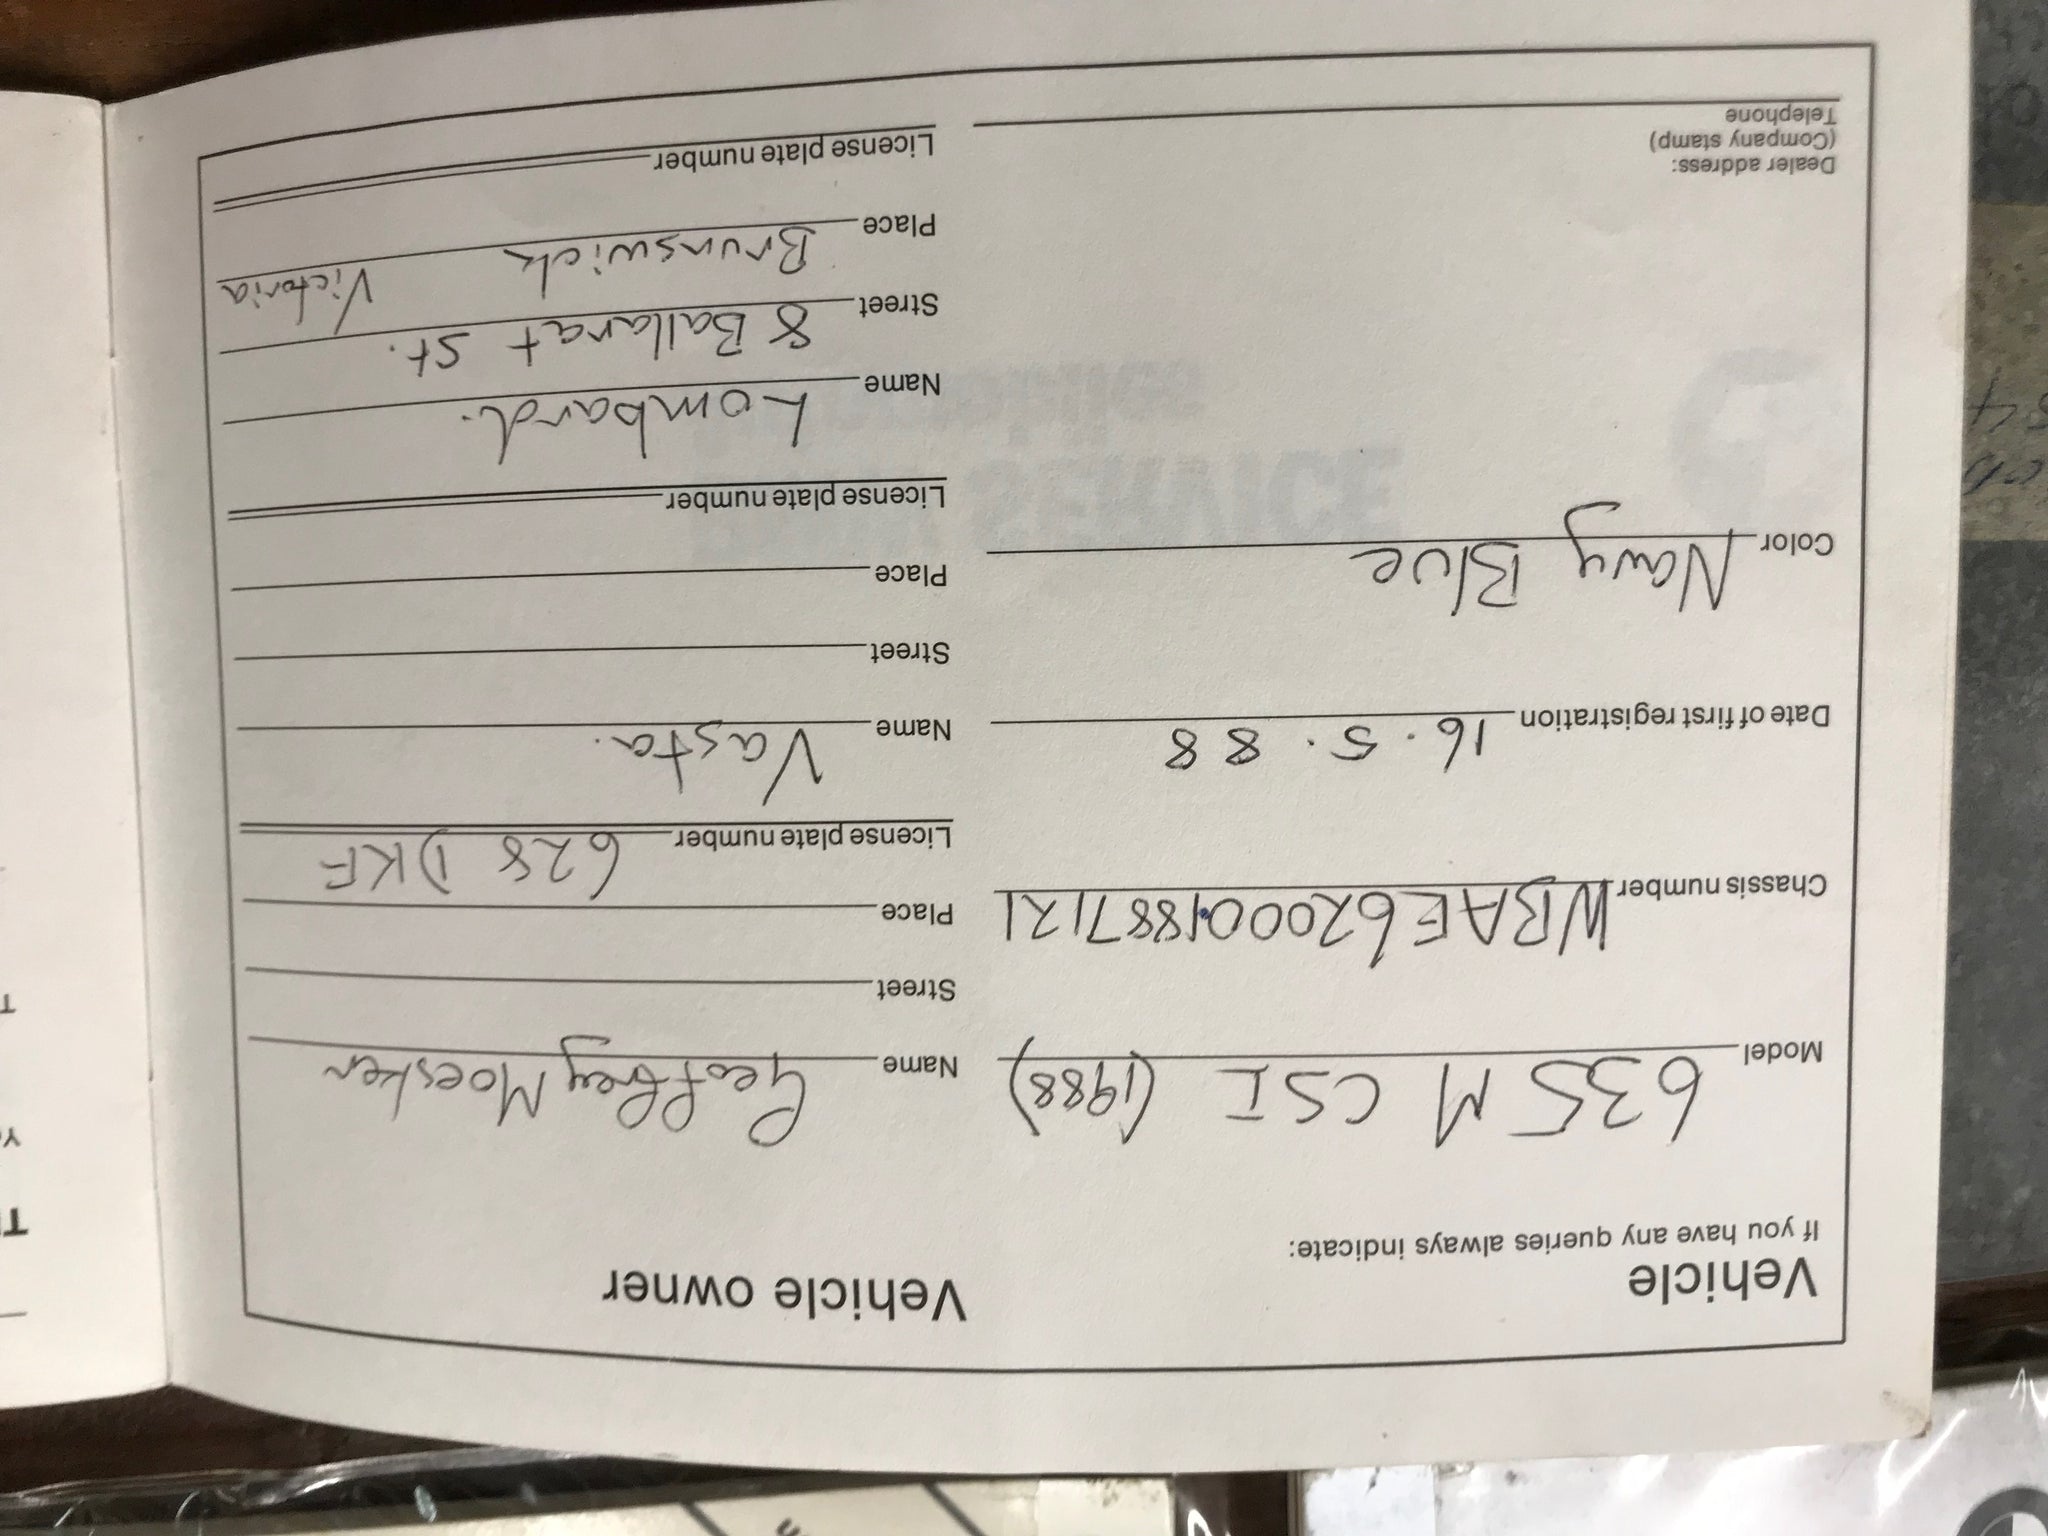 Vehicle
If you have any queries always indicate:
Model 635 M CSI (1988)
Chassis number WBAE620001887121
Date of first registration 16.5.88
Color Navy Blue
Dealer address:
(Company stamp)
Telephone
Vehicle owner
Name Geoffrey Moesker
Street
Place
License plate number 628 DKF
Name Vasta.
Street
Place
License plate number
Name Lombard.
Street 8 Ballarat St.
Place Brunswick Victoria
License plate number